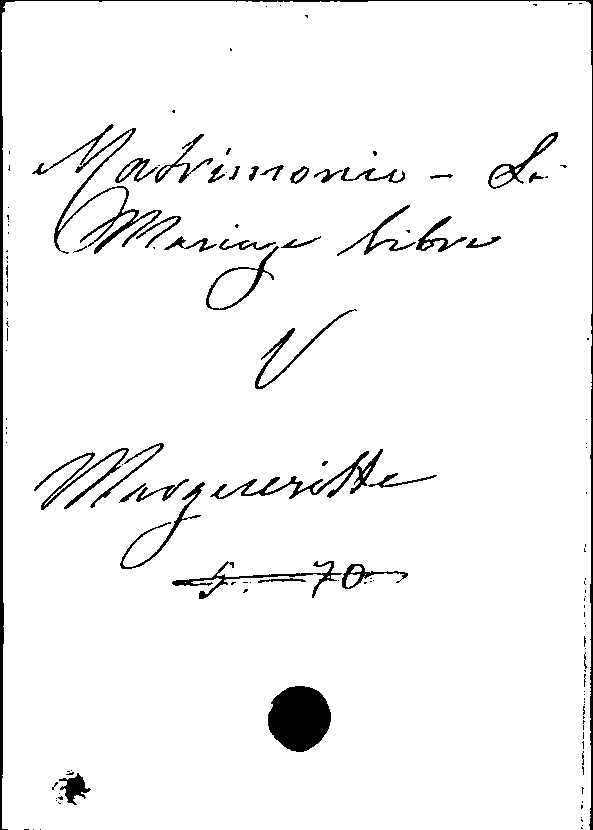 Matrimonio - Le
Mariage libre
V
Margueritte
5. 70